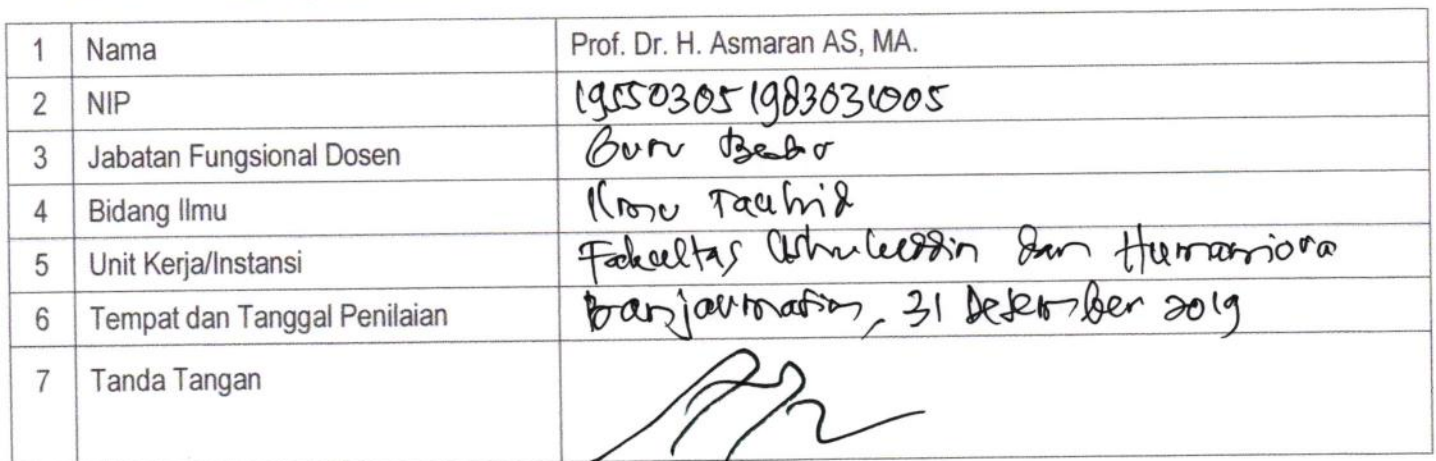 1 Nama Prof. Dr. H. Asmaran AS, MA.
2 NIP 195503051983031005
3 Jabatan Fungsional Dosen Guru Besar
4 Bidang Ilmu Ilmu Tauhid
5 Unit Kerja/Instansi Fakultas Ushuluddin dan Humaniora
6 Tempat dan Tanggal Penilaian Banjarmasin, 31 Desember 2019
7 Tanda Tangan